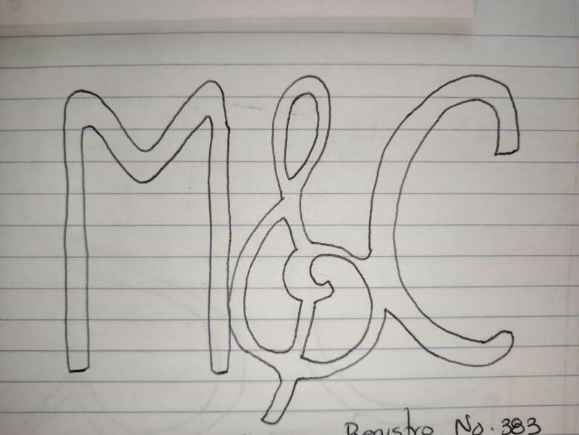 M&C
Registro No. 383